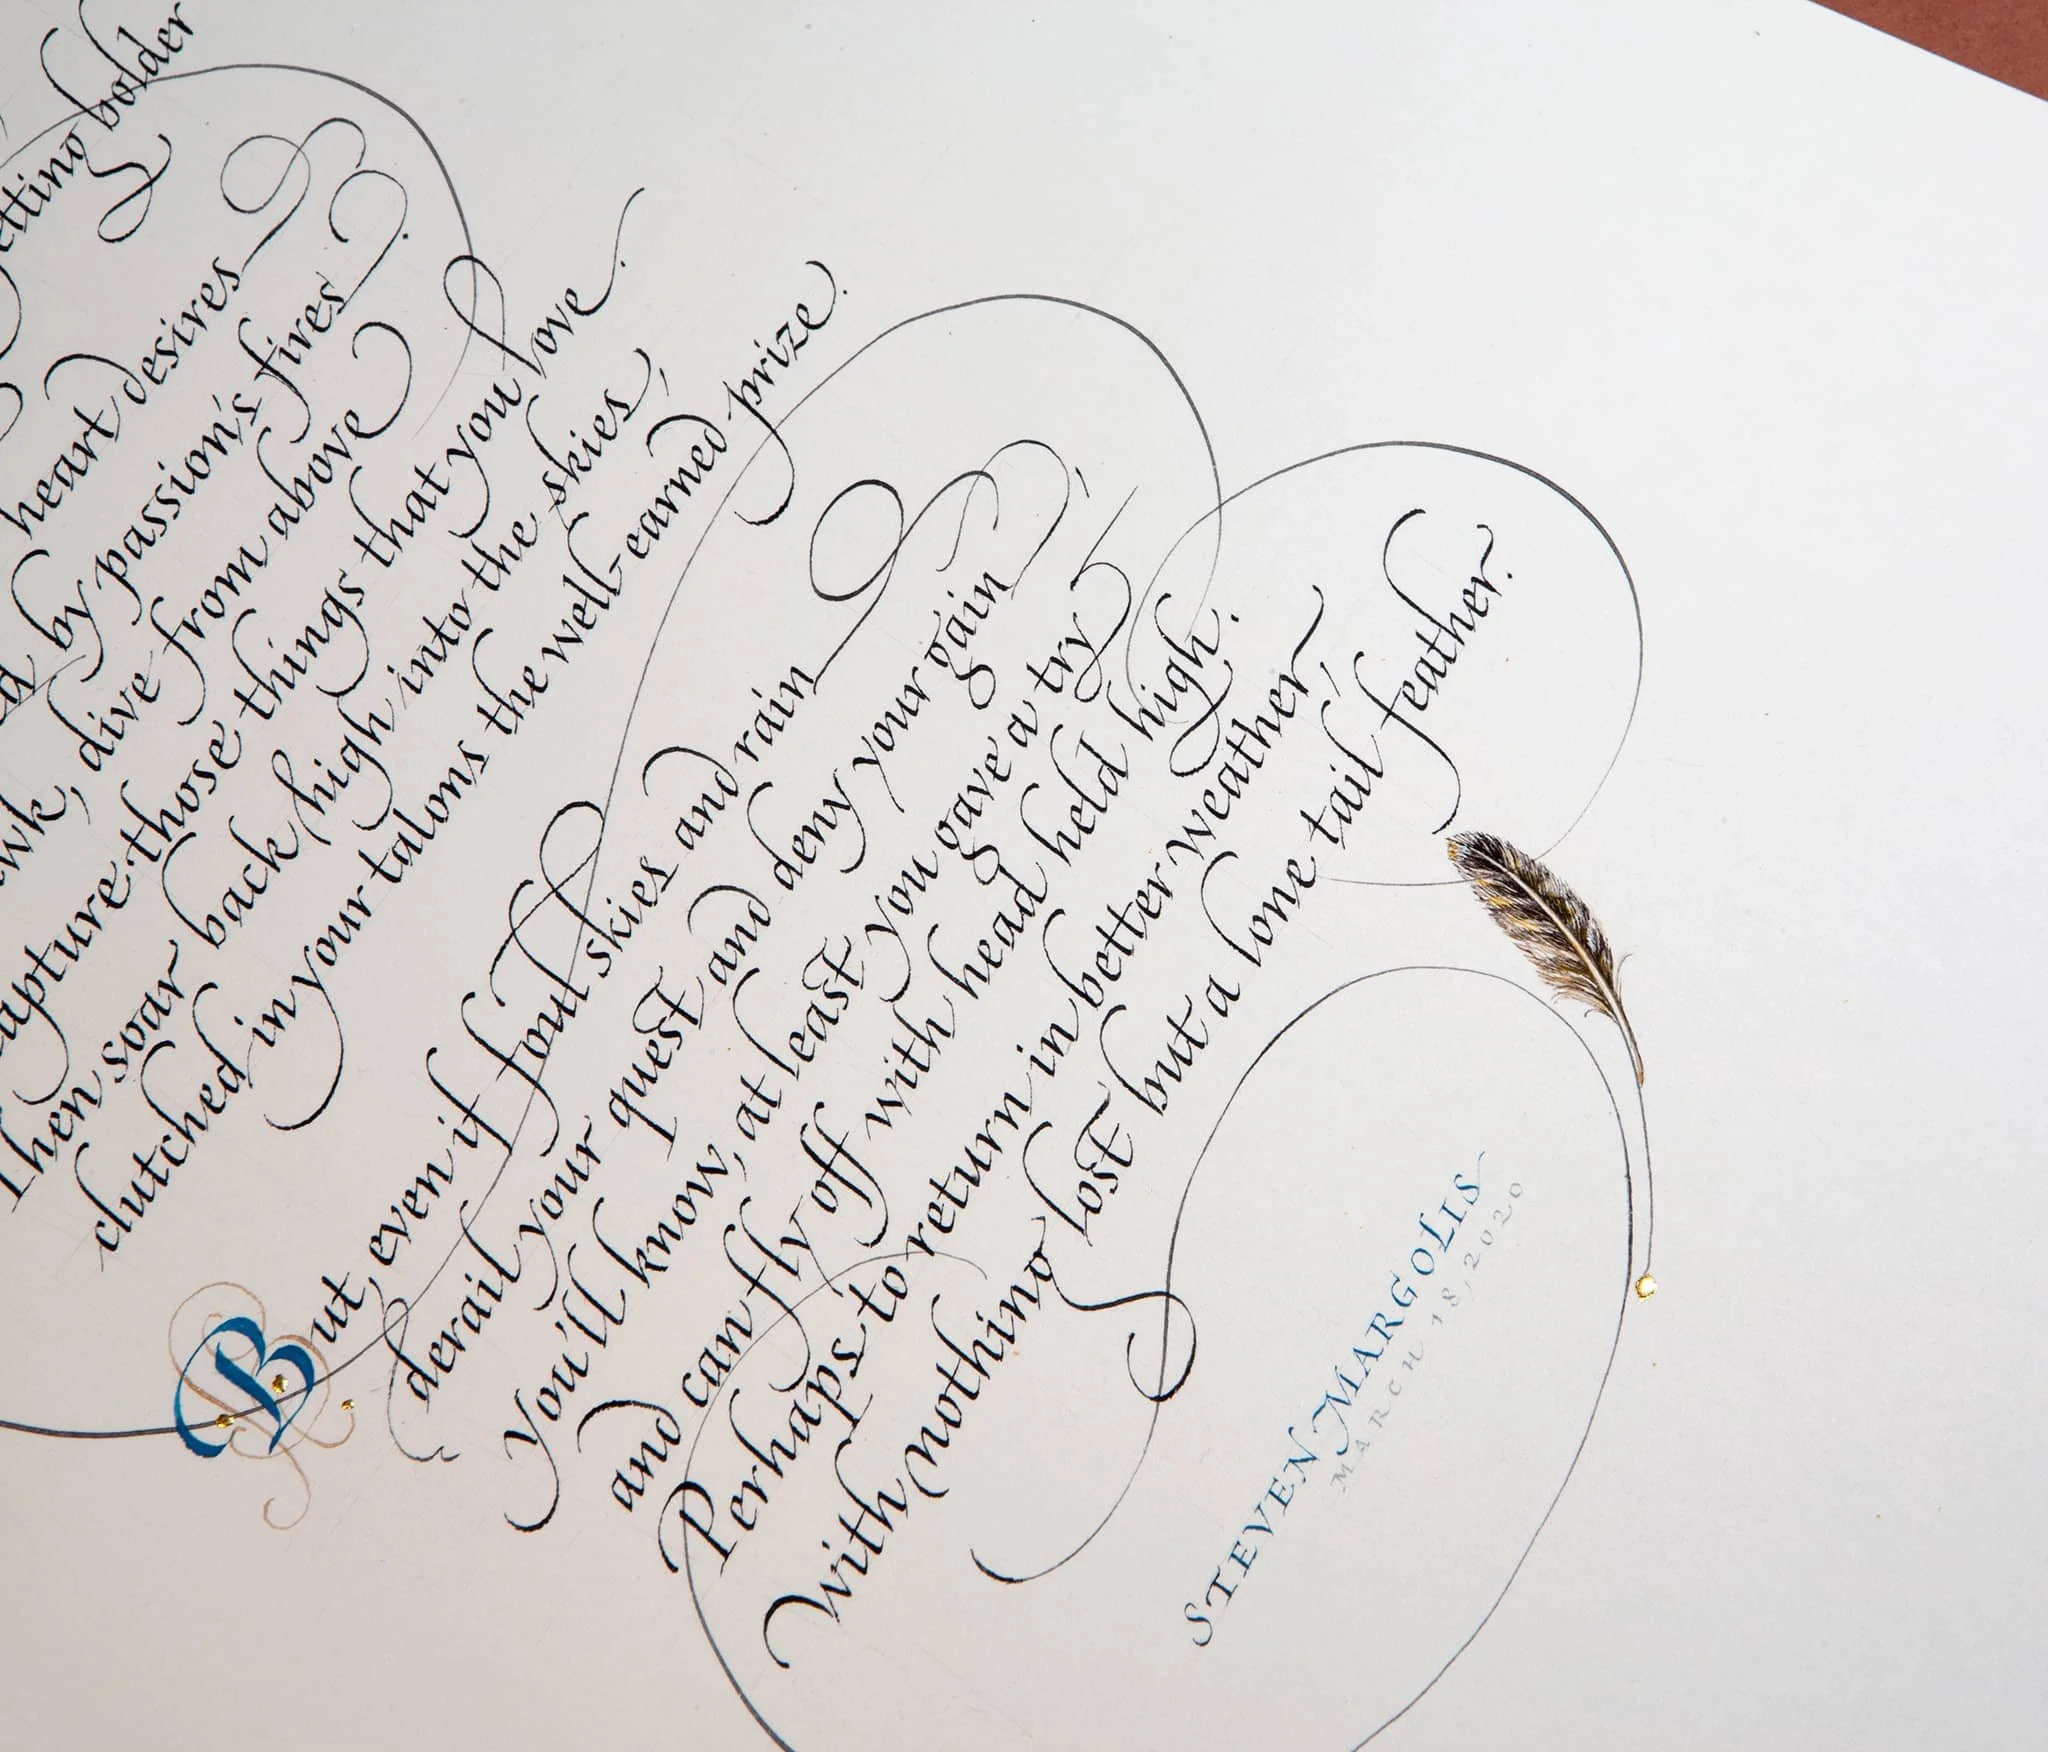 getting bolder
heart desires
by passion's fires
dive from above
capture those things that you love.
Then soar back high into the skies,
clutched in your talons the well-earned prize.
But, even if foul skies and rain
derail your quest and deny your gain,
You'll know, at least you gave a try
and can fly off with head held high.
Perhaps to return in better weather,
With nothing lost but a lone tail feather.
STEVEN MARGOLIS
MARCH 18, 2020